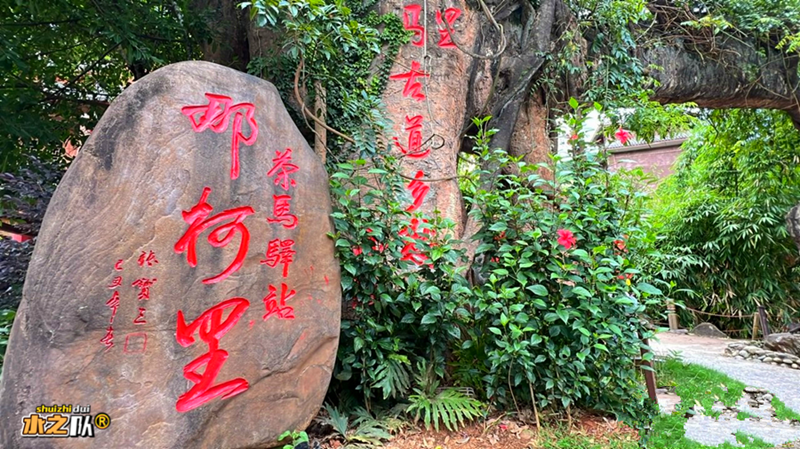 那柯里
茶馬驛站
張賀
乙丑年春
马古道乡
里
shuizhi dui
水之队®